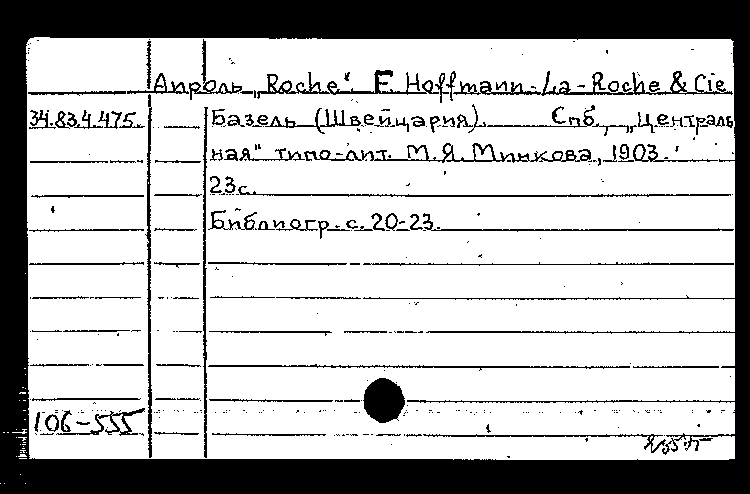 Апроль „Roche“. F. Hoffmann-La-Roche & Cie
34.83.4.475. Базель (Швейцария). Спб., „Централь
ная“ типо-лит. М.Я. Минкова, 1903.
23с.
Библиогр. с. 20-23.
106-555